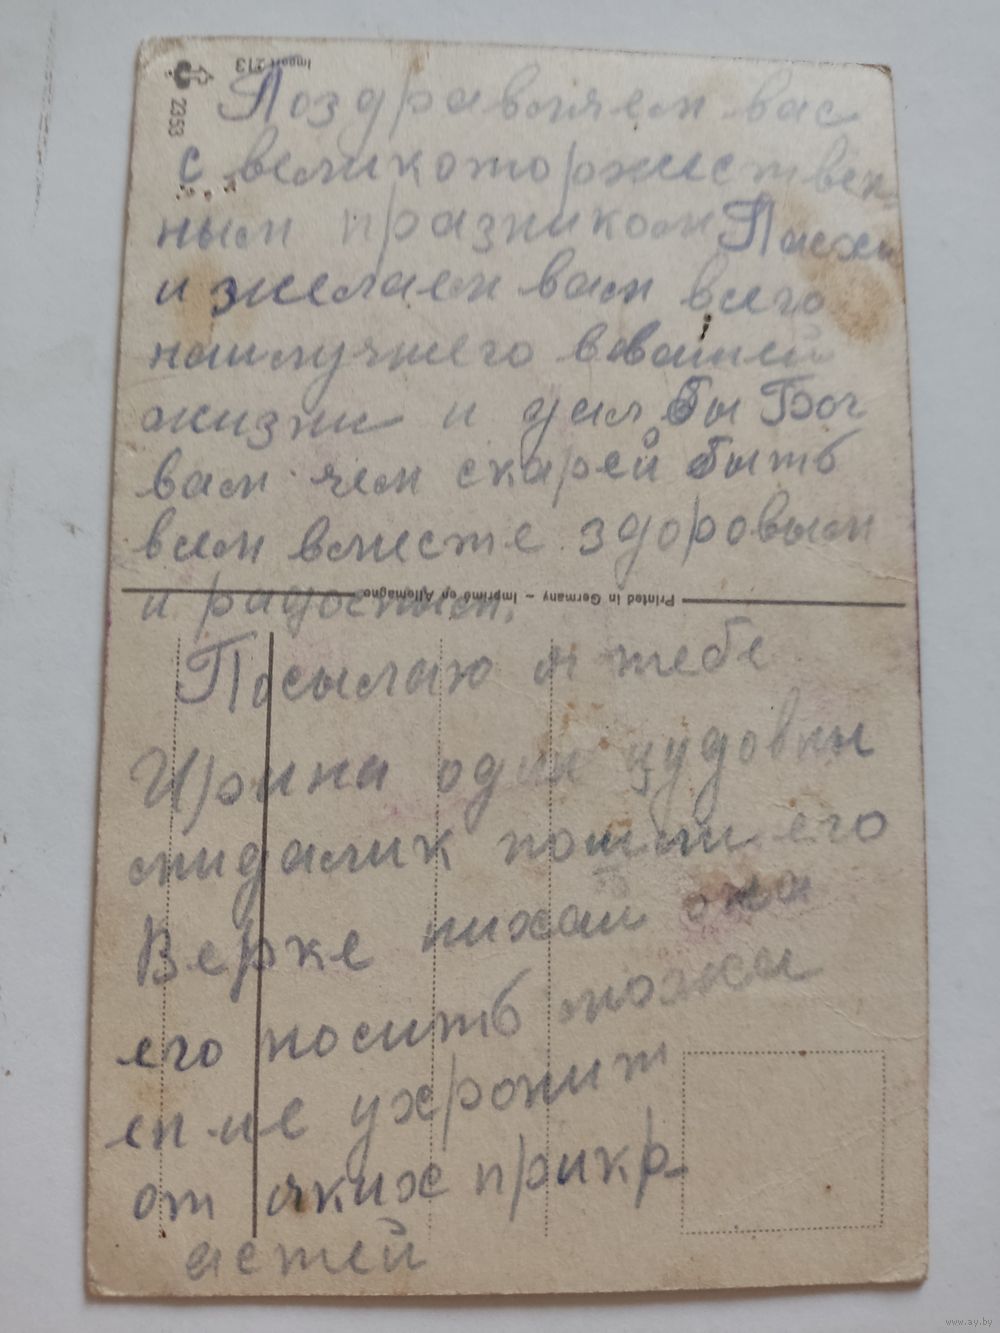 Import 213
2353
Поздравляем вас
с великоторжествен
ным празником Пасхи
и желаем вам всего
наилучшего в вашей
жизни и дал бы Бог
вам чем скарей быть
всем вместе здоровым
и радосным.
Printed in Germany – Imprimé en Allemagne
Посылаю я тебе
Ирина один цудовны
мидалик пошли его
Верке нихай она
его носить можа
ен ие ухронит
от яких прикр
астей
www.ay.by